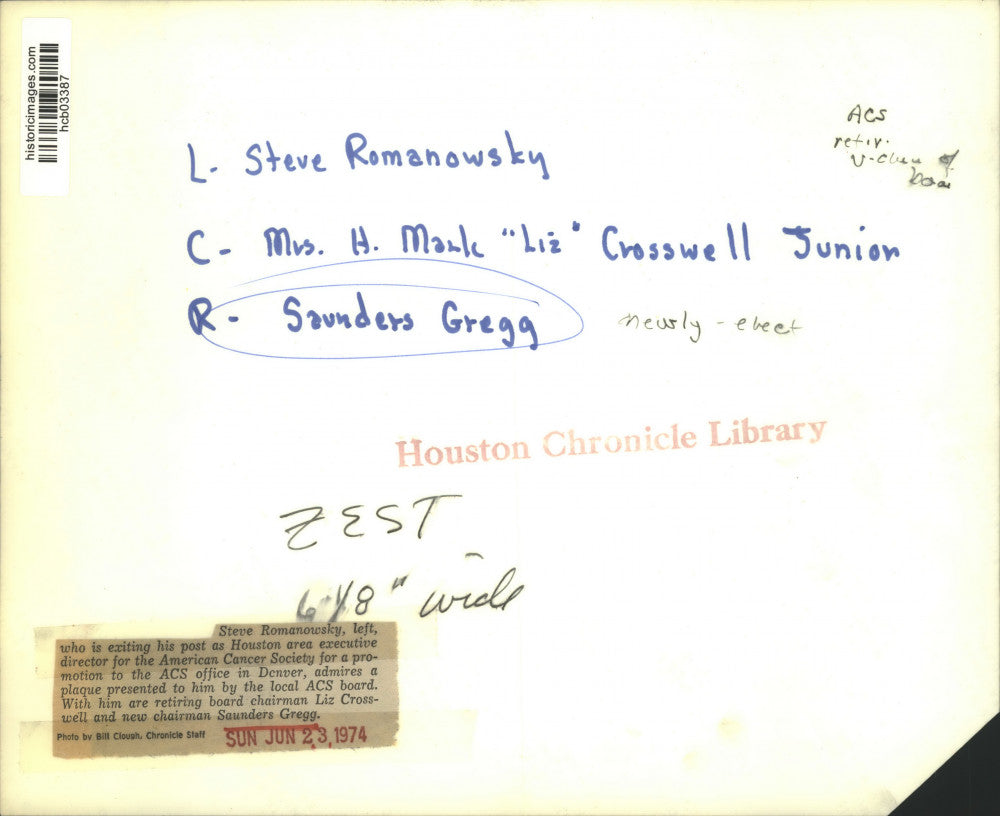 historicimages.com
hcb03387
ACS
retir.
of
L- Steve Romanowsky
C- Mrs. H. Mark "Liz" Crosswell Junior
R- Saunders Gregg
newly-elect
Houston Chronicle Library
ZEST
6 1/8" wide
Steve Romanowsky, left,
who is exiting his post as Houston area executive
director for the American Cancer Society for a pro-
motion to the ACS office in Denver, admires a
plaque presented to him by the local ACS board.
With him are retiring board chairman Liz Cross-
well and new chairman Saunders Gregg.
Photo by Bill Clough, Chronicle Staff
SUN JUN 23, 1974